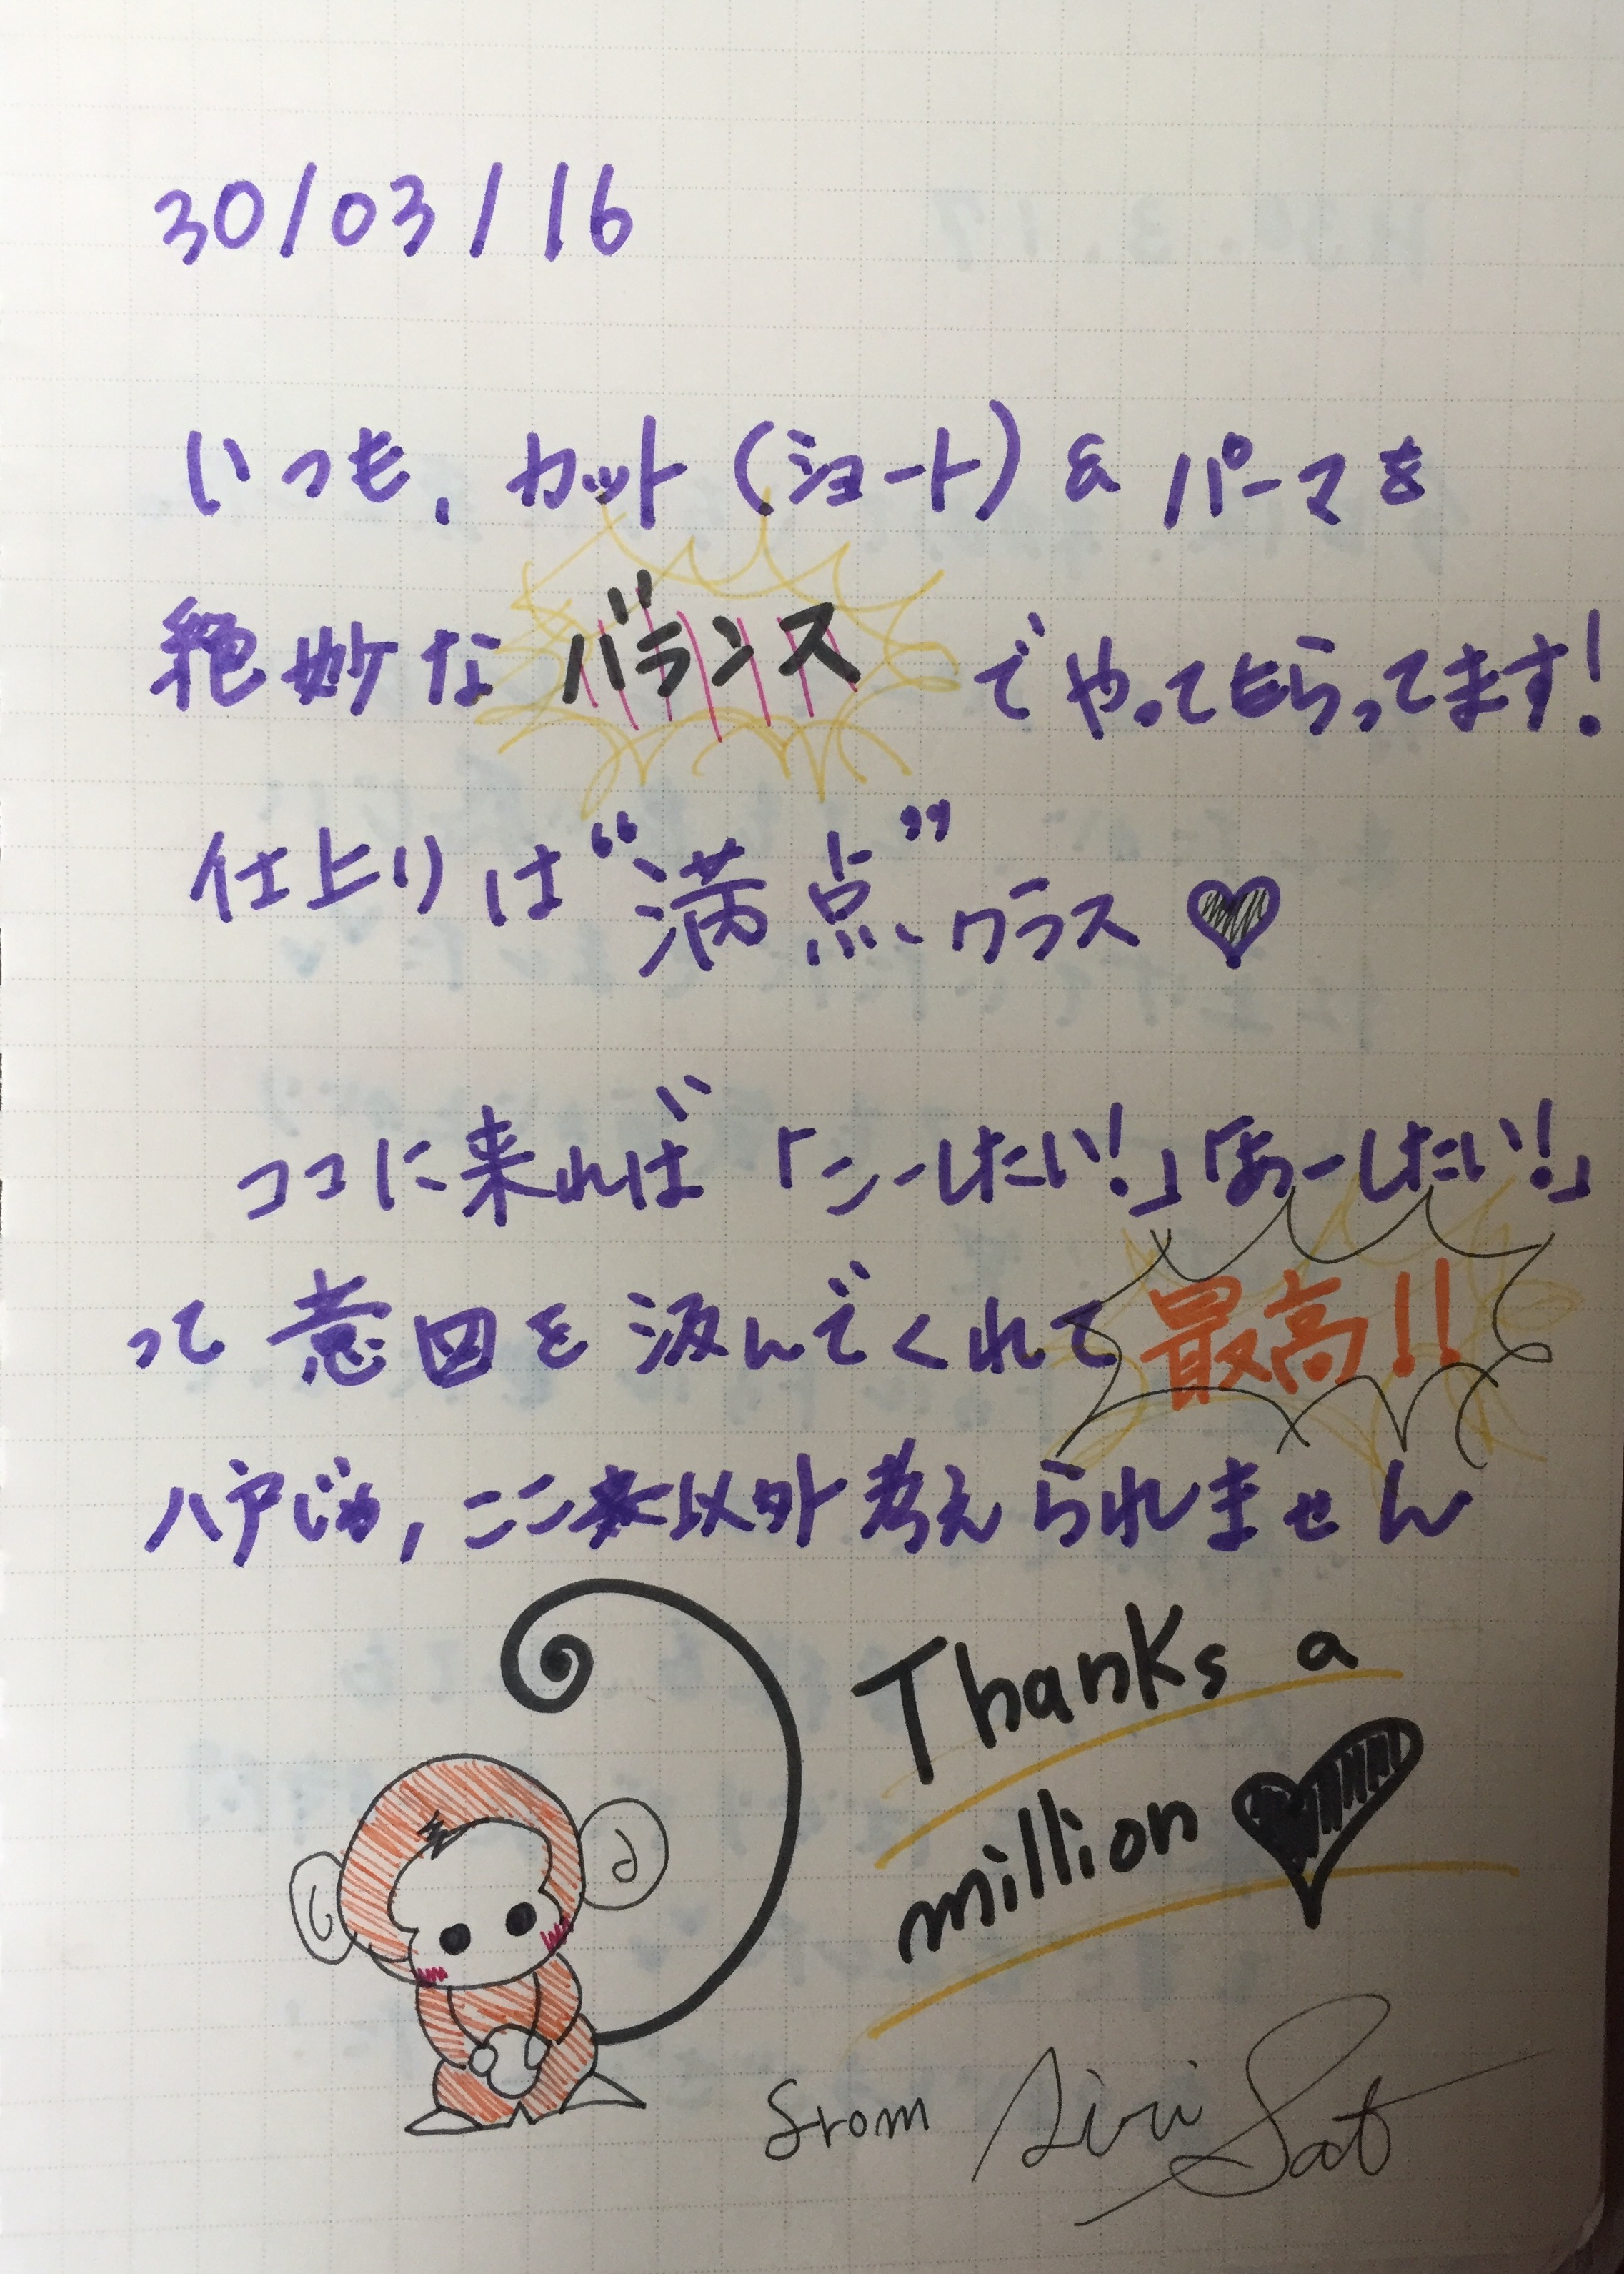 30/03/16
いつも, カット(ショート)& パーマを
絶妙な バランス でやってもらってます!
仕上りは“満点”クラス♥
ココに来れば「こーしたい!」「あーしたい!」
って 意図を汲んでくれて 最高!!
ここ以外考えられません
Thanks a
million ♥
from Siri Sat